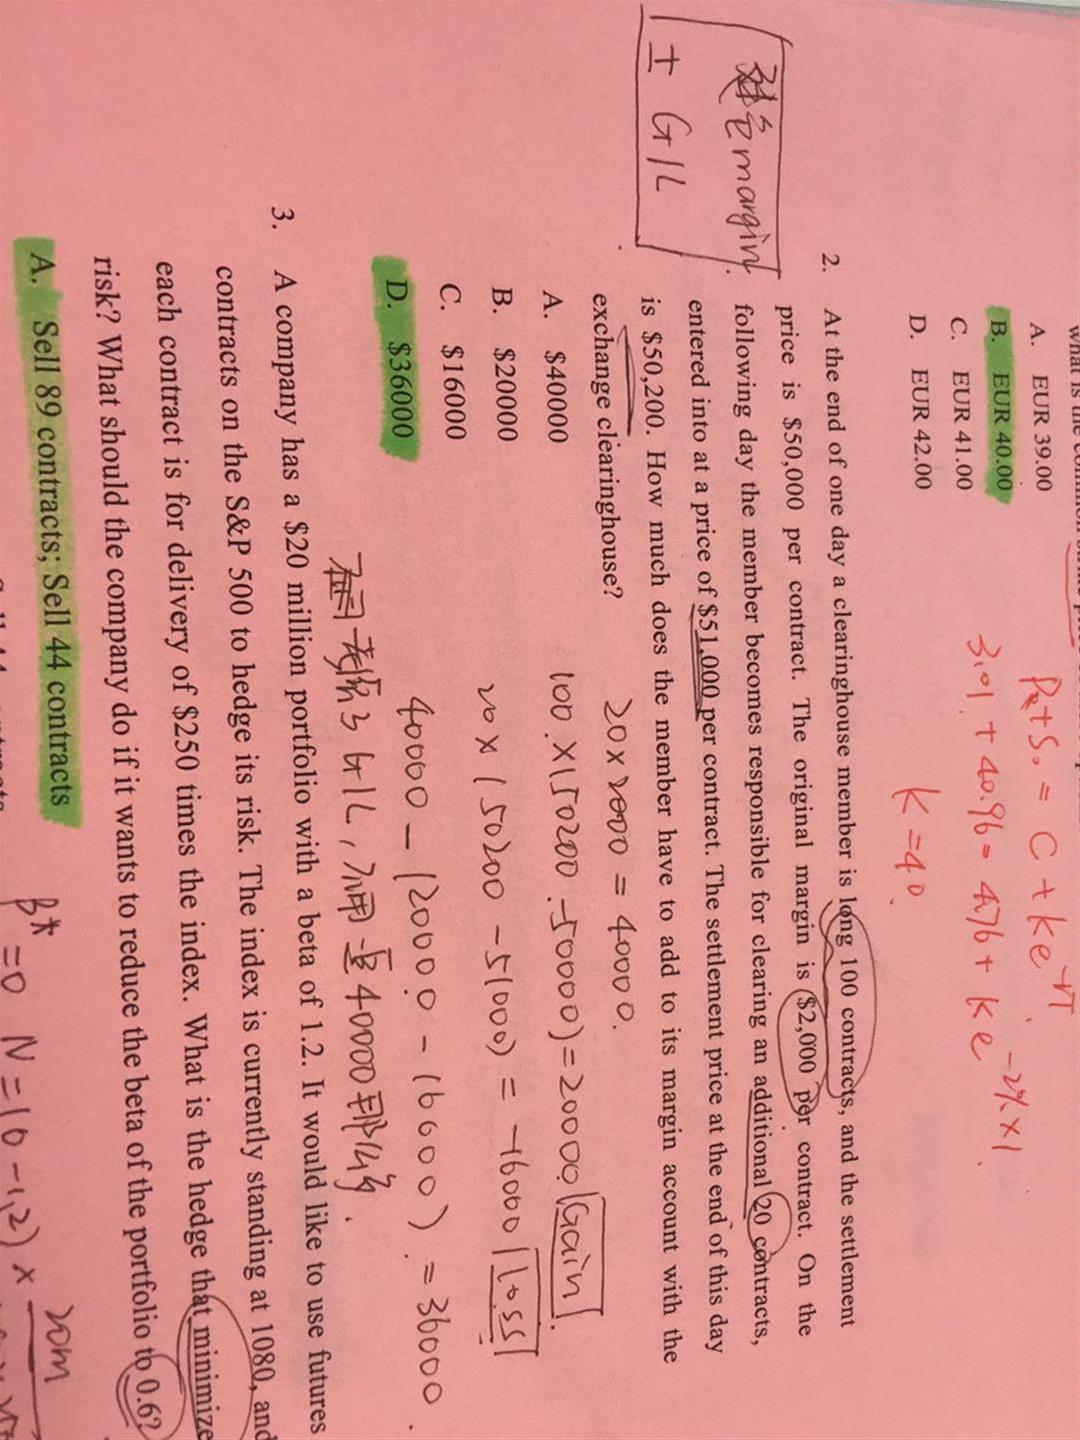 A. EUR 39.00
B. EUR 40.00
C. EUR 41.00
D. EUR 42.00
P+S₀ = C + Ke^-rT
3.01 + 40.96 = 4.76 + Ke^-2%×1
K = 40.
2. At the end of one day a clearinghouse member is long 100 contracts, and the settlement
price is $50,000 per contract. The original margin is $2,000 per contract. On the
following day the member becomes responsible for clearing an additional 20 contracts,
entered into at a price of $51,000 per contract. The settlement price at the end of this day
is $50,200. How much does the member have to add to its margin account with the
exchange clearinghouse?
margin
± G/L
A. $40000
B. $20000
C. $16000
D. $36000
20 × 2000 = 40000.
100 × (50200 - 50000) = 20000 Gain
20 × (50200 - 51000) = -16000 loss
40000 - (20000 - 16000) = 36000.
3. A company has a $20 million portfolio with a beta of 1.2. It would like to use futures
contracts on the S&P 500 to hedge its risk. The index is currently standing at 1080, and
each contract is for delivery of $250 times the index. What is the hedge that minimize
risk? What should the company do if it wants to reduce the beta of the portfolio to 0.6?
A. Sell 89 contracts; Sell 44 contracts
β* = 0 N = (0 - 1.2) × 20m